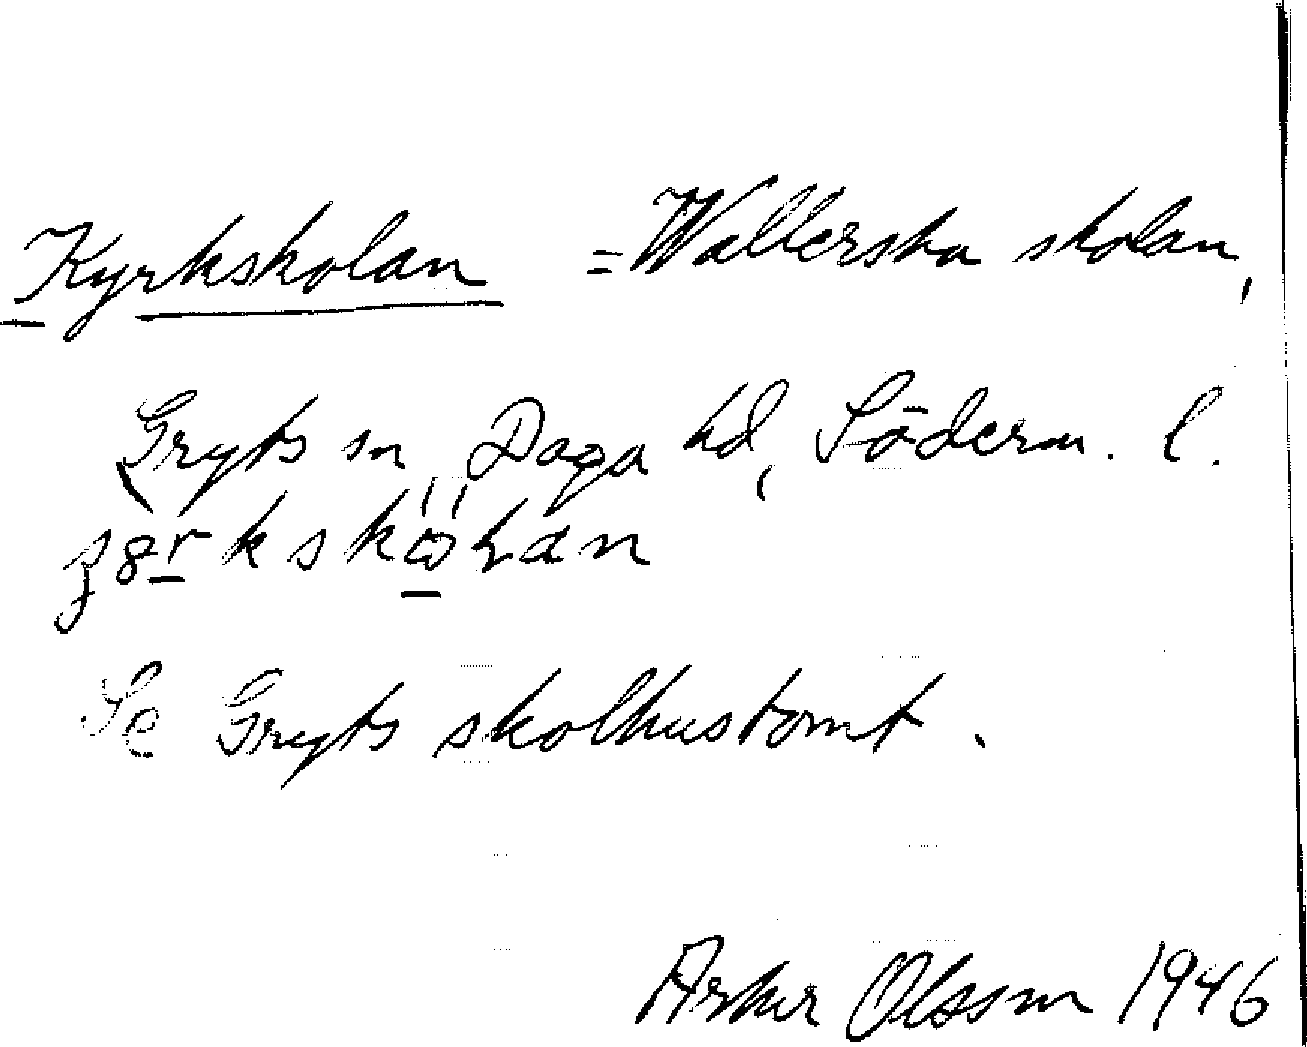 Kyrkskolan = Wallerska skolan,
Gryts sn, Daga hd, Söderm. l.
Se Gryts skolhustomt.
Olsson 1946